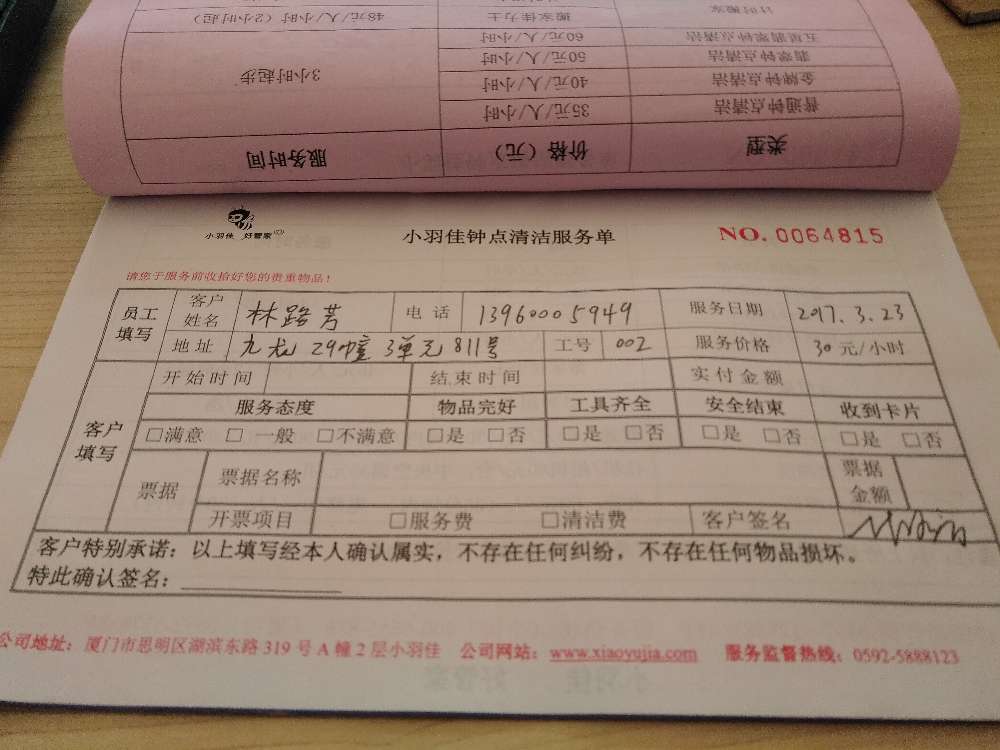 计时搬家 搬家佳力士 48元/人/小时(2小时起)
五星翡翠钟点清洁 60元/人/小时
翡翠钟点清洁 50元/人/小时 3小时起步
金牌钟点清洁 40元/人/小时
普通钟点清洁 35元/人/小时
类型 价格(元) 服务时间
小羽佳 好管家 小羽佳钟点清洁服务单 NO. 0064815
请您于服务前收拾好您的贵重物品!
员工填写 客户姓名 林路芳 电话 13960005949 服务日期 2017.3.23
地址 九龙 29幢 3单元 811号 工号 002 服务价格 30 元/小时
客户填写 开始时间 结束时间 实付金额
服务态度 物品完好 工具齐全 安全结束 收到卡片
□满意 □一般 □不满意 □是 □否 □是 □否 □是 □否 □是 □否
票据 票据名称 票据金额
开票项目 □服务费 □清洁费 客户签名
客户特别承诺:以上填写经本人确认属实,不存在任何纠纷,不存在任何物品损坏。
特此确认签名:
公司地址:厦门市思明区湖滨东路 319 号 A 幢 2 层小羽佳 公司网站:www.xiaoyujia.com 服务监督热线:0592-5888123